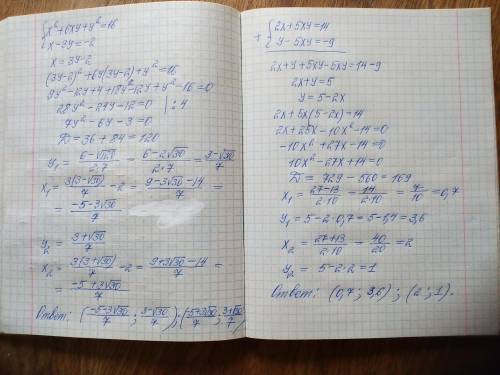 { x² + 6xy + y² = 16
x - 3y = -2
x = 3y - 2
(3y-2)² + 6y(3y-2) + y² = 16
9y² - 12y + 4 + 18y² - 12y + y² - 16 = 0
28y² - 24y - 12 = 0 | : 4
7y² - 6y - 3 = 0
D = 36 + 84 = 120
y₁ = (6 - √120)/(2·7) = (6 - 2√30)/(2·7) = (3 - √30)/7
x₁ = 3(3 - √30)/7 - 2 = (9 - 3√30 - 14)/7 =
= (-5 - 3√30)/7
y₂ = (3 + √30)/7
x₂ = 3(3 + √30)/7 - 2 = (9 + 3√30 - 14)/7 =
= (-5 + 3√30)/7
Ответ: ((-5 - 3√30)/7 ; (3 - √30)/7) ; ((-5 + 3√30)/7 ; (3 + √30)/7)
+ { 2x + 5xy = 14
y - 5xy = -9
2x + y + 5xy - 5xy = 14 - 9
2x + y = 5
y = 5 - 2x
2x + 5x(5 - 2x) = 14
2x + 25x - 10x² - 14 = 0
-10x² + 27x - 14 = 0
10x² - 27x + 14 = 0
D = 729 - 560 = 169
x₁ = (27 - 13)/(2·10) = 14/(2·10) = 7/10 = 0,7
y₁ = 5 - 2·0,7 = 5 - 1,4 = 3,6
x₂ = (27 + 13)/(2·10) = 40/20 = 2
y₂ = 5 - 2·2 = 1
Ответ: (0,7 ; 3,6) ; (2 ; 1).